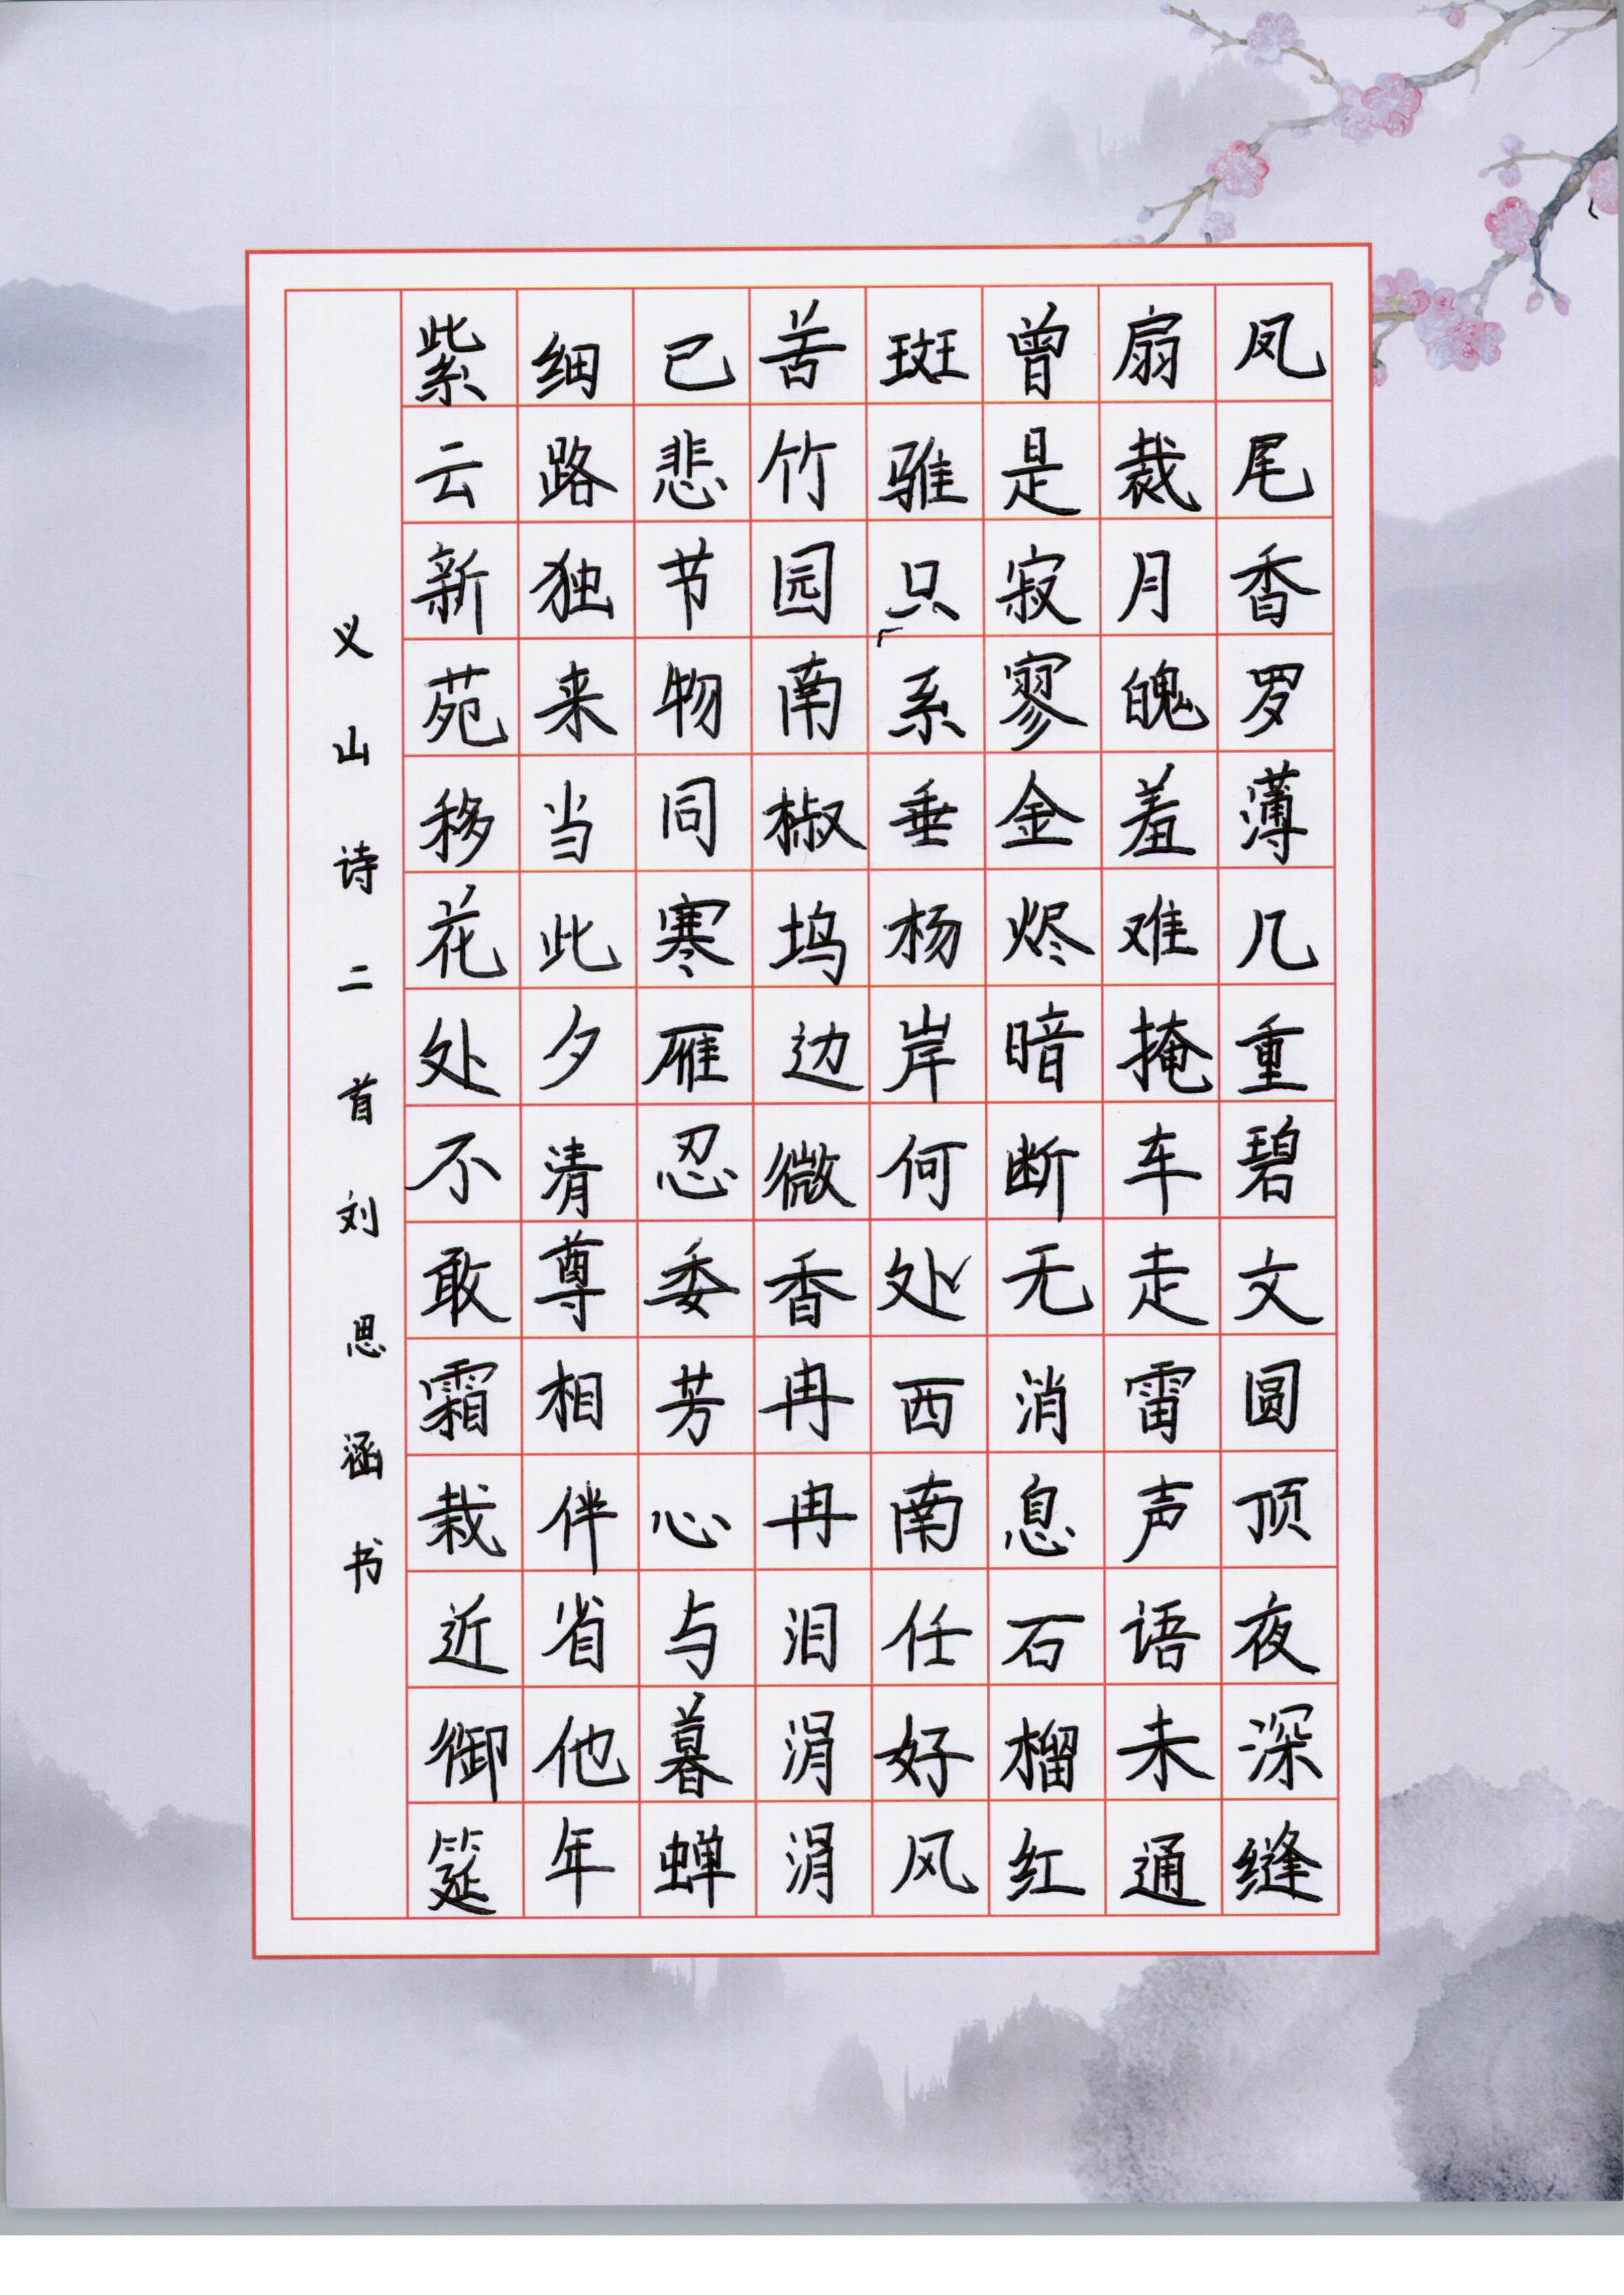 凤尾香罗薄几重碧文圆顶夜深缝
扇裁月魄羞难掩车走雷声语未通
曾是寂寥金烬暗断无消息石榴红
斑骓只系垂杨岸何处西南任好风
苦竹园南椒坞边微香冉冉泪涓涓
已悲节物同寒雁忍委芳心与暮蝉
细路独来当此夕清尊相伴省他年
紫云新苑移花处不敢霜栽近御筵
义山诗二首刘思涵书